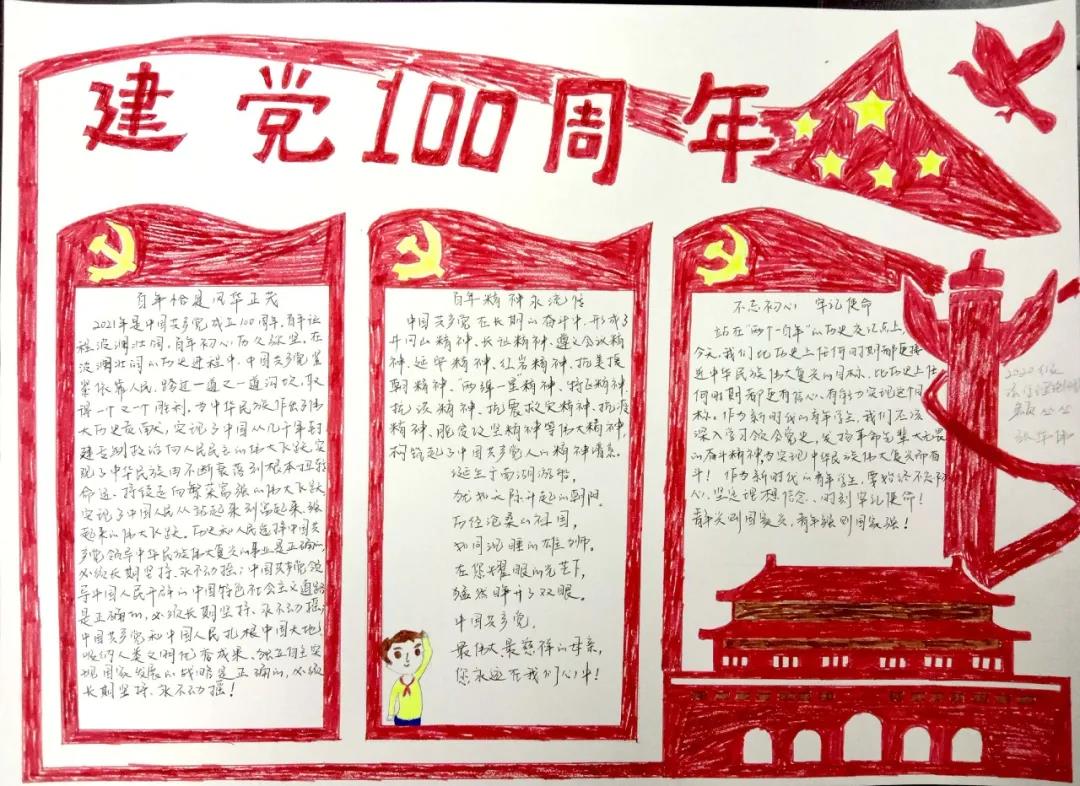 建党100周年
百年恰是风华正茂
2021年是中国共产党成立100周年,百年征
程波澜壮阔,百年初心历久弥坚。在
波澜壮阔的历史进程中,中国共产党紧
紧依靠人民,跨过一道又一道沟坎,取
得一个又一个胜利,为中华民族作出了伟
大历史贡献,实现了中国从几千年封
建专制政治向人民民主的伟大飞跃,实
现了中华民族由不断衰落到根本扭转
命运、持续走向繁荣富强的伟大飞跃,
实现了中国人民从站起来到富起来、强
起来的伟大飞跃。历史和人民选择中国共
产党领导中华民族伟大复兴的事业是正确的,
必须长期坚持、永不动摇;中国共产党领
导中国人民开辟的中国特色社会主义道路
是正确的,必须长期坚持、永不动摇;
中国共产党和中国人民扎根中国大地、
吸纳人类文明优秀成果、独立自主实
现国家发展的战略是正确的,必须
长期坚持、永不动摇!
百年精神永流传
中国共产党在长期的奋斗中,形成了
井冈山精神、长征精神、遵义会议精
神、延安精神、红岩精神、抗美援
朝精神、“两弹一星”精神、特区精神、
抗洪精神、抗震救灾精神、抗疫
精神、脱贫攻坚精神等伟大精神,
构筑起了中国共产党人的精神谱系。
诞生于南湖游船,
犹如之际升起的朝阳。
历经沧桑的祖国,
如同沉睡的雄狮。
在您耀眼的光芒下,
猛然睁开了双眼。
中国共产党,
最伟大、最慈祥的母亲,
您永远在我们心中!
不忘初心 牢记使命
站在“两个一百年”的历史交汇点上,
今天,我们比历史上任何时期都更接
近中华民族伟大复兴的目标,比历史上任
何时期都更有信心、有能力实现这个目
标。作为新时代的青年学生,我们应该
深入学习领会党史,发扬革命先辈大无畏
的奋斗精神,为实现中华民族伟大复兴而奋
斗! 作为新时代的青年学生,要始终不忘初
心,坚定理想信念,时刻牢记使命!
青年兴则国家兴,青年强则国家强!
2020级